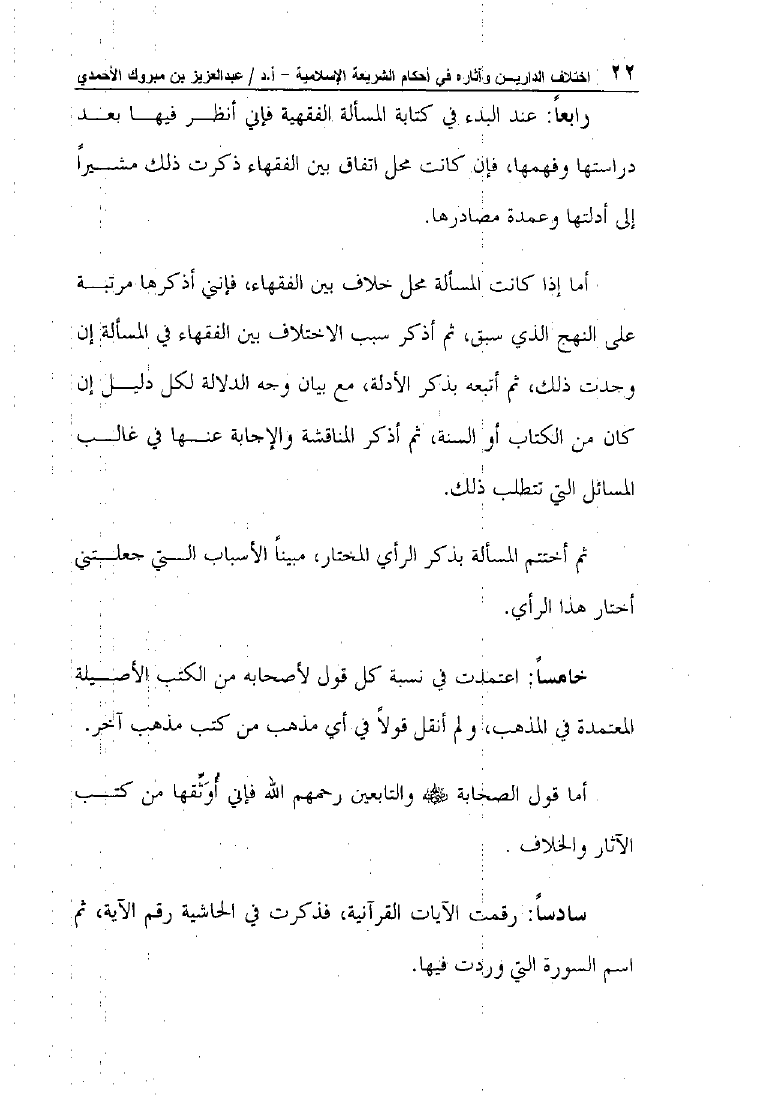 ٢٢ اختلاف الداريـن وآثاره في أحكام الشريعة الإسلامية – أ.د / عبدالعزيز بن مبروك الأحمدي
رابعاً: عند البدء في كتابة المسألة الفقهية فإني أنظـر فيهـا بعـد
دراستها وفهمها، فإن كانت محل اتفاق بين الفقهاء ذكرت ذلك مشـيراً
إلى أدلتها وعمدة مصادرها.
أما إذا كانت المسألة محل خلاف بين الفقهاء، فإنني أذكرها مرتبـة
على النهج الذي سبق، ثم أذكر سبب الاختلاف بين الفقهاء في المسألة إن
وجدت ذلك، ثم أتبعه بذكر الأدلة، مع بيان وجه الدلالة لكل دليـل إن
كان من الكتاب أو السنة، ثم أذكر المناقشة والإجابة عنـها في غالـب
المسائل التي تتطلب ذلك.
ثم أختتم المسألة بذكر الرأي المختار، مبيناً الأسباب الـتي جعلـتني
أختار هذا الرأي.
خامساً: اعتمدت في نسبة كل قول لأصحابه من الكتب الأصـيلة
المعتمدة في المذهب، ولم أنقل قولاً في أي مذهب من كتب مذهب آخر.
أما قول الصحابة ﷺ والتابعين رحمهم الله فإني أُوَثِّقها من كتـب
الآثار والخلاف .
سادساً: رقمت الآيات القرآنية، فذكرت في الحاشية رقم الآية، ثم
اسم السورة التي وردت فيها.